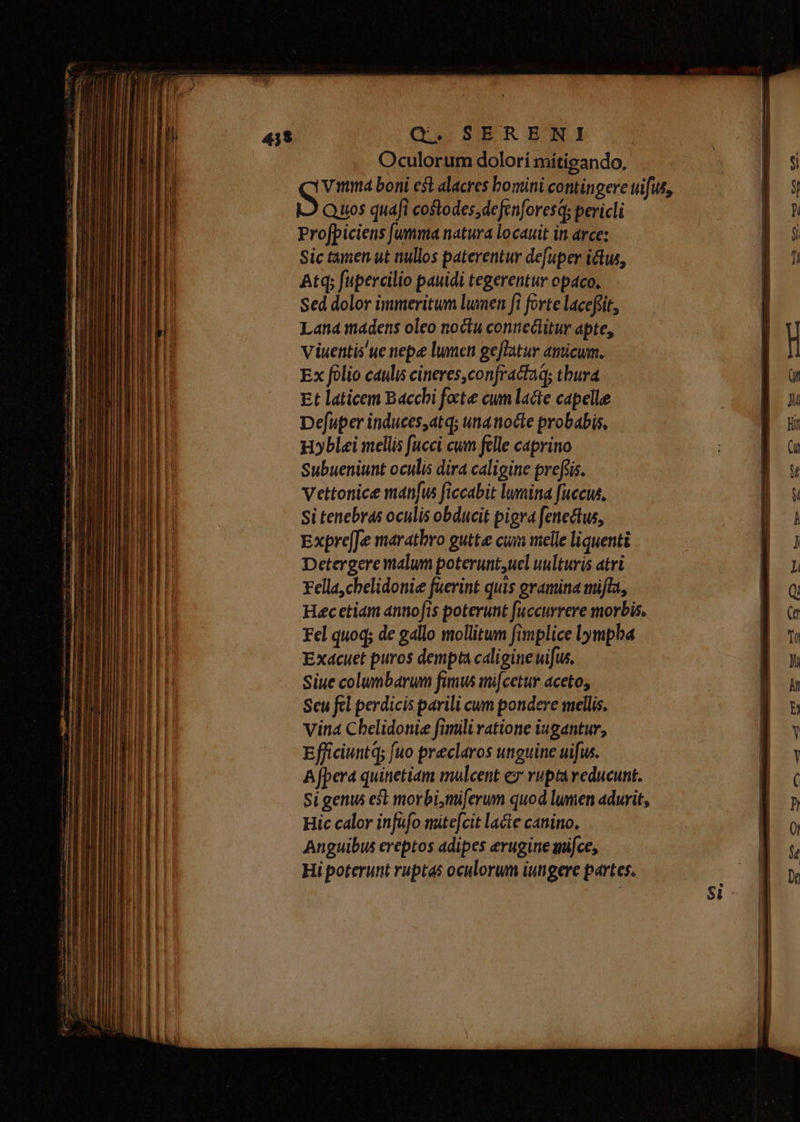 438 Q. SERENI
Oculorum dolori mitigando.
SVmma boni est alacres homini contingere uisus,
Quos quasi costodes,defensoresq; pericli
Prospiciens summa natura locauit in arce:
Sic tamen ut nullos paterentur desuper ictus,
Atq; supercilio pauidi tegerentur opaco.
Sed dolor immeritum lumen si forte lacessit,
Lana madens oleo noctu connectitur apte,
Viuentis'ue nepæ lumen gestatur amicum.
Ex folio caulis cineres,confractaq; thura
Et laticem Bacchi fœtæ cum lacte capellæ
Desuper induces,atq; una nocte probabis.
Hyblei mellis succi cum felle caprino
Subueniunt oculis dira caligine pressis.
Vettonicæ mansus siccabit lumina succus.
Si tenebras oculis obducit pigra senectus,
Expressæ marathro guttæ cum melle liquenti
Detergere malum poterunt,uel uulturis atri
Fella,chelidoniæ fuerint quis gramina mista,
Hæc etiam annosis poterunt succurrere morbis.
Fel quoq; de gallo mollitum simplice lympha
Exacuet puros dempta caligine uisus.
Siue columbarum fimus miscetur aceto,
Seu fel perdicis parili cum pondere mellis.
Vina Chelidoniæ simili ratione iugantur,
Efficiuntq; suo præclaros unguine uisus.
Aspera quinetiam mulcent & rupta reducunt.
Si genus est morbi,miserum quod lumen adurit,
Hic calor infuso mitescit lacte canino.
Anguibus ereptos adipes ærugine misce,
Hi poterunt ruptas oculorum iungere partes.
Si